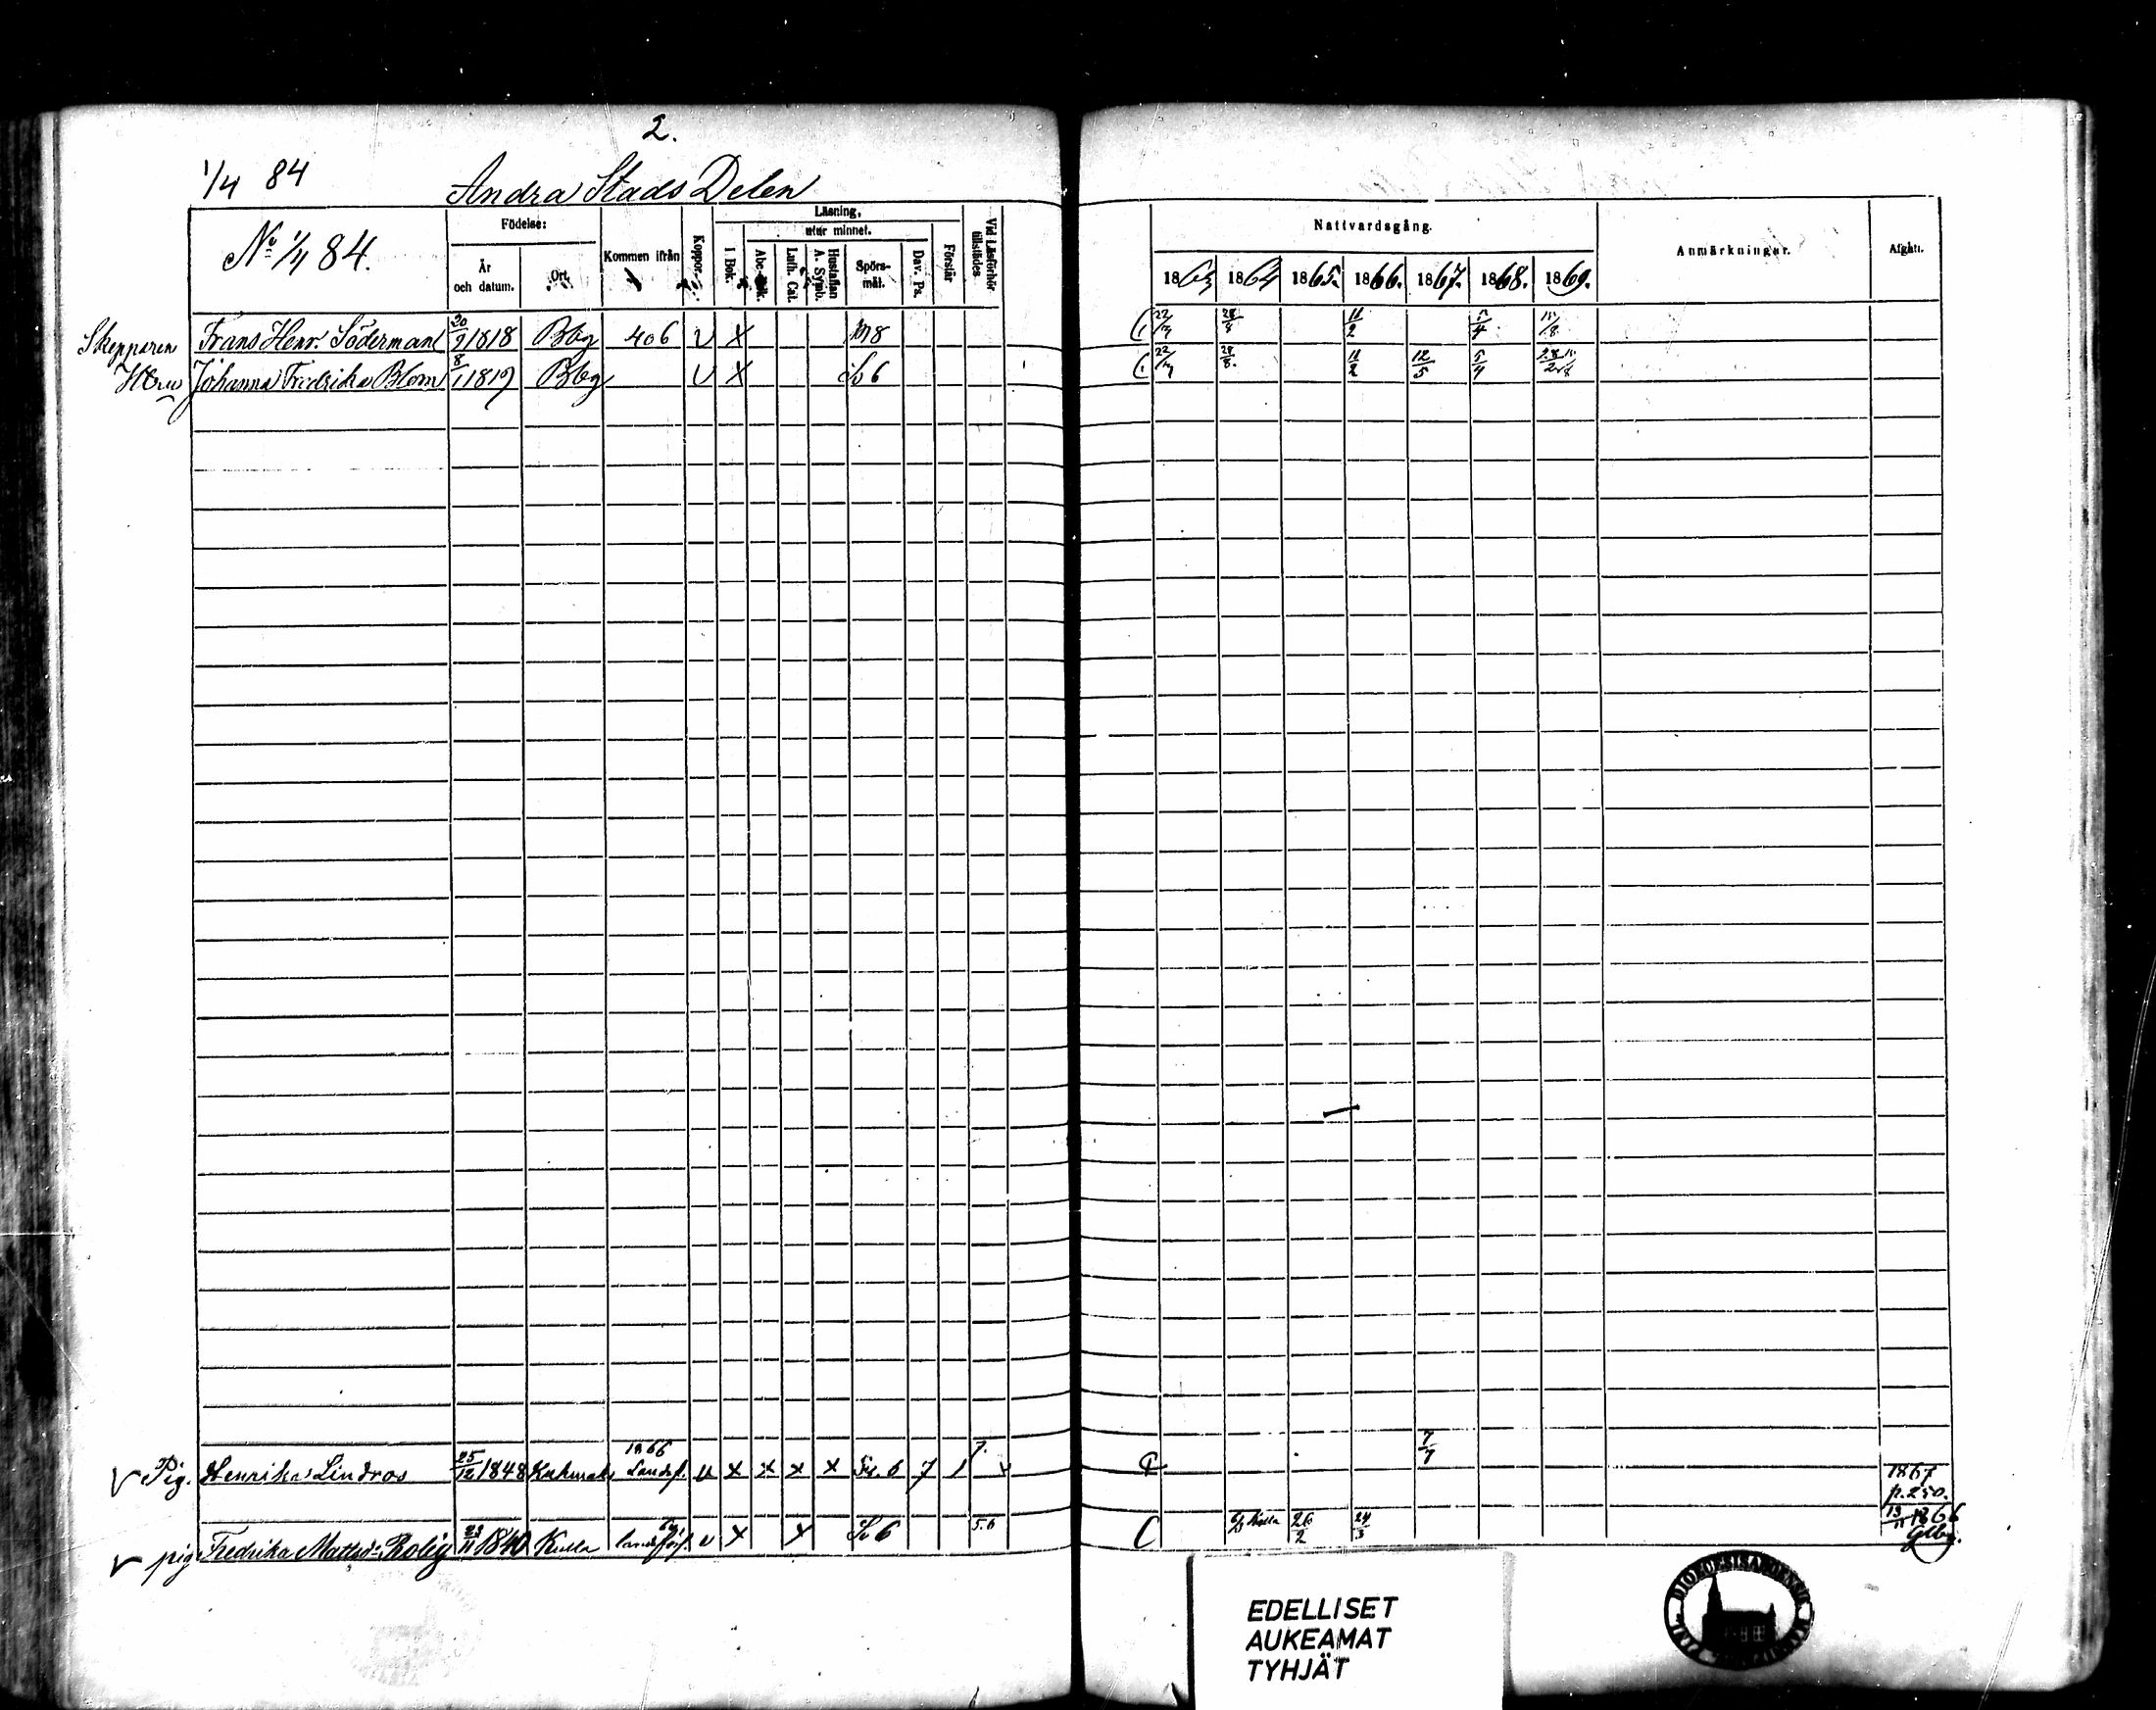 2.
1/4 84
Andra Stads Delen
No 1/4 84.
Födelse:
År och datum.
Ort.
Kommen ifrån
Koppor.
Läsning,
utur minnet.
I Bok.
Abc-Bok.
Luth. Cat.
Hustaflan A. Symb.
Spörsmål.
Dav. Ps.
Förstår
Vid Läsförhör tillstädes
Nattvardsgång.
1863 1864 1865. 1866. 1867. 1868. 1869.
Anmärkningar.
Afgått.
Skepparen Frans Henr. Söderman 20/9 1818 Bbg 406 v x 8 22/7 11/2 5/4
Hru Johanna Fredrika Blom 8/1 1819 Bbg v x 6 22/7 11/2 12/5 5/4
v Pig. Henrika Lindros 25/12 1848 1866 Landsf. v x x x x 6 7 1 7. 7/7 1867 p. 250.
v pig Fredrika Mattsd. Rolig 23/11 1840 Kulla landsförs. v x x 6 5.6 Kulla 26/2 24/3 13/11 1866
EDELLISET
AUKEAMAT
TYHJÄT